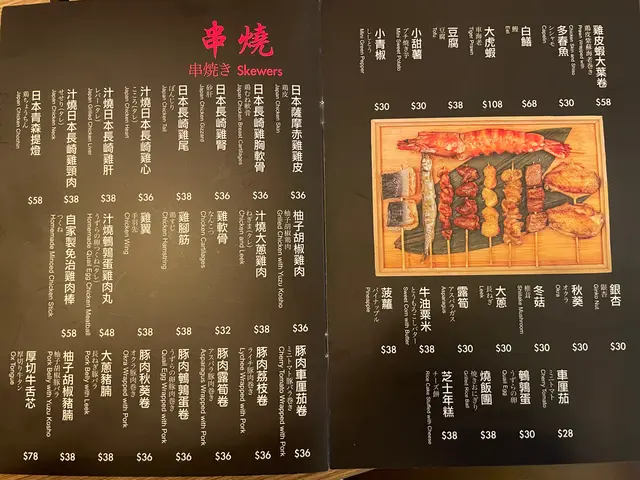 串燒
串焼き Skewers
日本薩摩赤雞雞皮
鶏皮
Japan Chicken Skin
$36
日本長崎雞胸軟骨
鶏むね軟骨
Japan Chicken Breast Cartilages
$36
日本長崎雞腎
砂肝
Japan Chicken Gizzard
$36
日本長崎雞尾
ぼんじり
Japan Chicken Tail
$38
汁燒日本長崎雞心
こころ(タレ)
Japan Chicken Heart
$36
汁燒日本長崎雞肝
レバー(タレ)
Japan Grilled Chicken Liver
$38
汁燒日本長崎雞頸肉
せせり(タレ)
Japan Chicken Neck
$38
日本青森提燈
鶏ちょうちん
Japan Chicken Chochin
$58
柚子胡椒雞肉
柚子胡椒鶏肉
Grilled Chicken with Yuzu Kosho
$36
汁燒大蔥雞肉
ねぎま(タレ)
Chicken and Leek
$38
雞軟骨
なんこつ
Chicken Cartilages
$32
雞腳筋
Chicken Hamstring
$38
雞翼
手羽先
Chicken Wing
$38
汁燒鵪鶉蛋雞肉丸
うずらの卵つくね(タレ)
Homemade Quail Egg Chicken Meatball
$48
自家製免治雞肉棒
つくね
Homemade Minced Chicken Stick
$58
豚肉車厘茄卷
ミニトマト豚バラ巻き
Cherry Tomato Wrapped with Pork
$36
豚肉荔枝卷
ライチ豚肉巻き
Lychee Wrapped with Pork
$36
豚肉露筍卷
アスパラ豚肉巻き
Asparagus Wrapped with Pork
$36
豚肉鵪鶉蛋卷
うずらの卵豚肉巻き
Quail Egg Wrapped with Pork
$36
豚肉秋葵卷
オクラ豚肉巻き
Okra Wrapped with Pork
$36
大蔥豬腩
長ねぎ豚バラ
Pork Belly with Leek
$38
柚子胡椒豬腩
柚子胡椒豚バラ
Pork Belly with Yuzu Kosho
$38
厚切牛舌芯
厚切り牛タン
Ox Tongue
$78
雞皮蝦大葉卷
鶏皮紫蘇海老巻き
Perilla Wrapped with Chicken Skin and Shrimp
$58
多春魚
シシャモ
Capelin
$30
白鱔
鰻
Eel
$68
大虎蝦
車海老
Tiger Prawn
$108
豆腐
豆腐
Tofu
$38
小甜薯
プチ焼き芋
Mini Sweet Potato
$30
小青椒
ししとう
Mini Green Pepper
$30
銀杏
銀杏
Ginkgo Nut
$30
秋葵
オクラ
Okra
$30
冬菇
椎茸
Shiitake Mushroom
$30
大蔥
長ねぎ
Leek
$30
露筍
アスパラガス
Asparagus
$38
牛油粟米
とうもろこしバター
Sweet Corn with Butter
$30
菠蘿
パイナップル
Pineapple
$38
車厘茄
ミニトマト
Cherry Tomato
$28
鵪鶉蛋
うずらの卵
Quail Egg
$30
燒飯團
焼きおにぎり
Grilled Rice Ball
$38
芝士年糕
チーズ餅
Rice Cake Stuffed with Cheese
$38